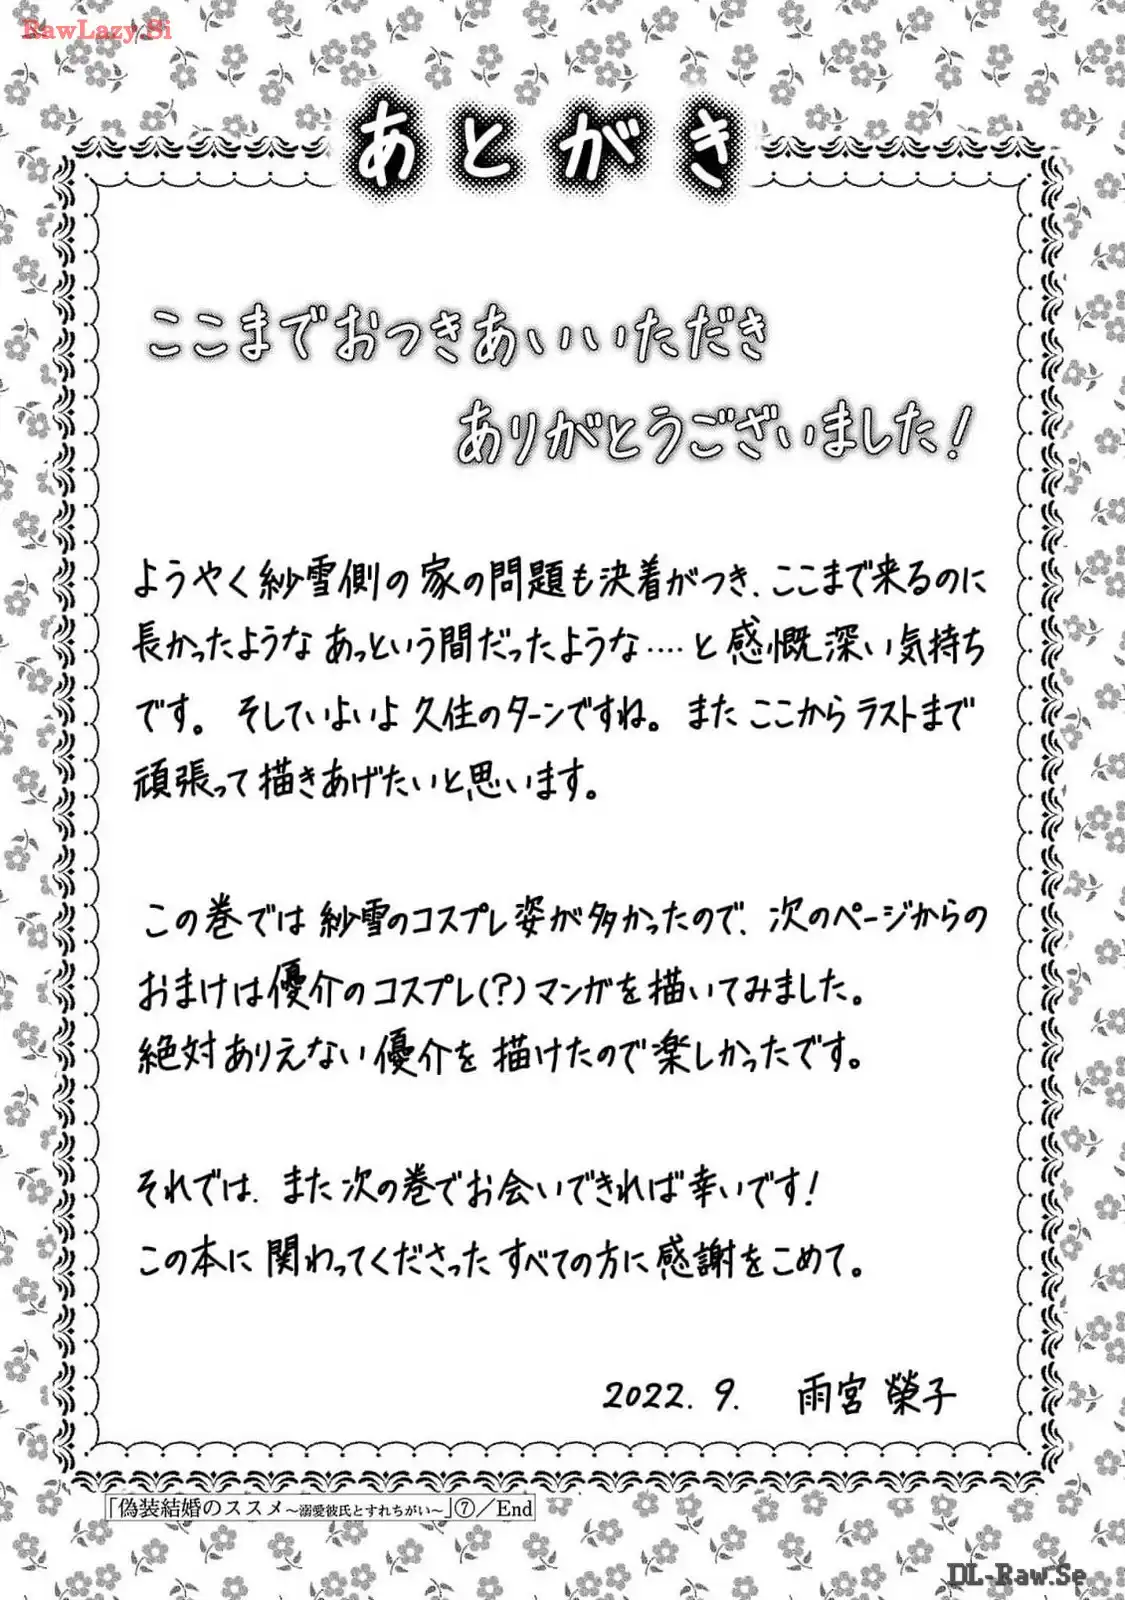 RawLazy.Si
あとがき
ここまでおつきあいいただき
ありがとうございました!
ようやく紗雪側の家の問題も決着がつき、ここまで来るのに
長かったようなあっという間だったような‥‥と感慨深い気持ち
です。そしていよいよ久住のターンですね。またここからラストまで
頑張って描きあげたいと思います。
この巻では紗雪のコスプレ姿が多かったので、次のページからの
おまけは優介のコスプレ(?)マンガを描いてみました。
絶対ありえない優介を描けたので楽しかったです。
それでは、また次の巻でお会いできれば幸いです!
この本に関わってくださったすべての方に感謝をこめて。
2022.9. 雨宮榮子
「偽装結婚のススメ〜溺愛彼氏とすれちがい〜」⑦/End
DL-Raw.Se